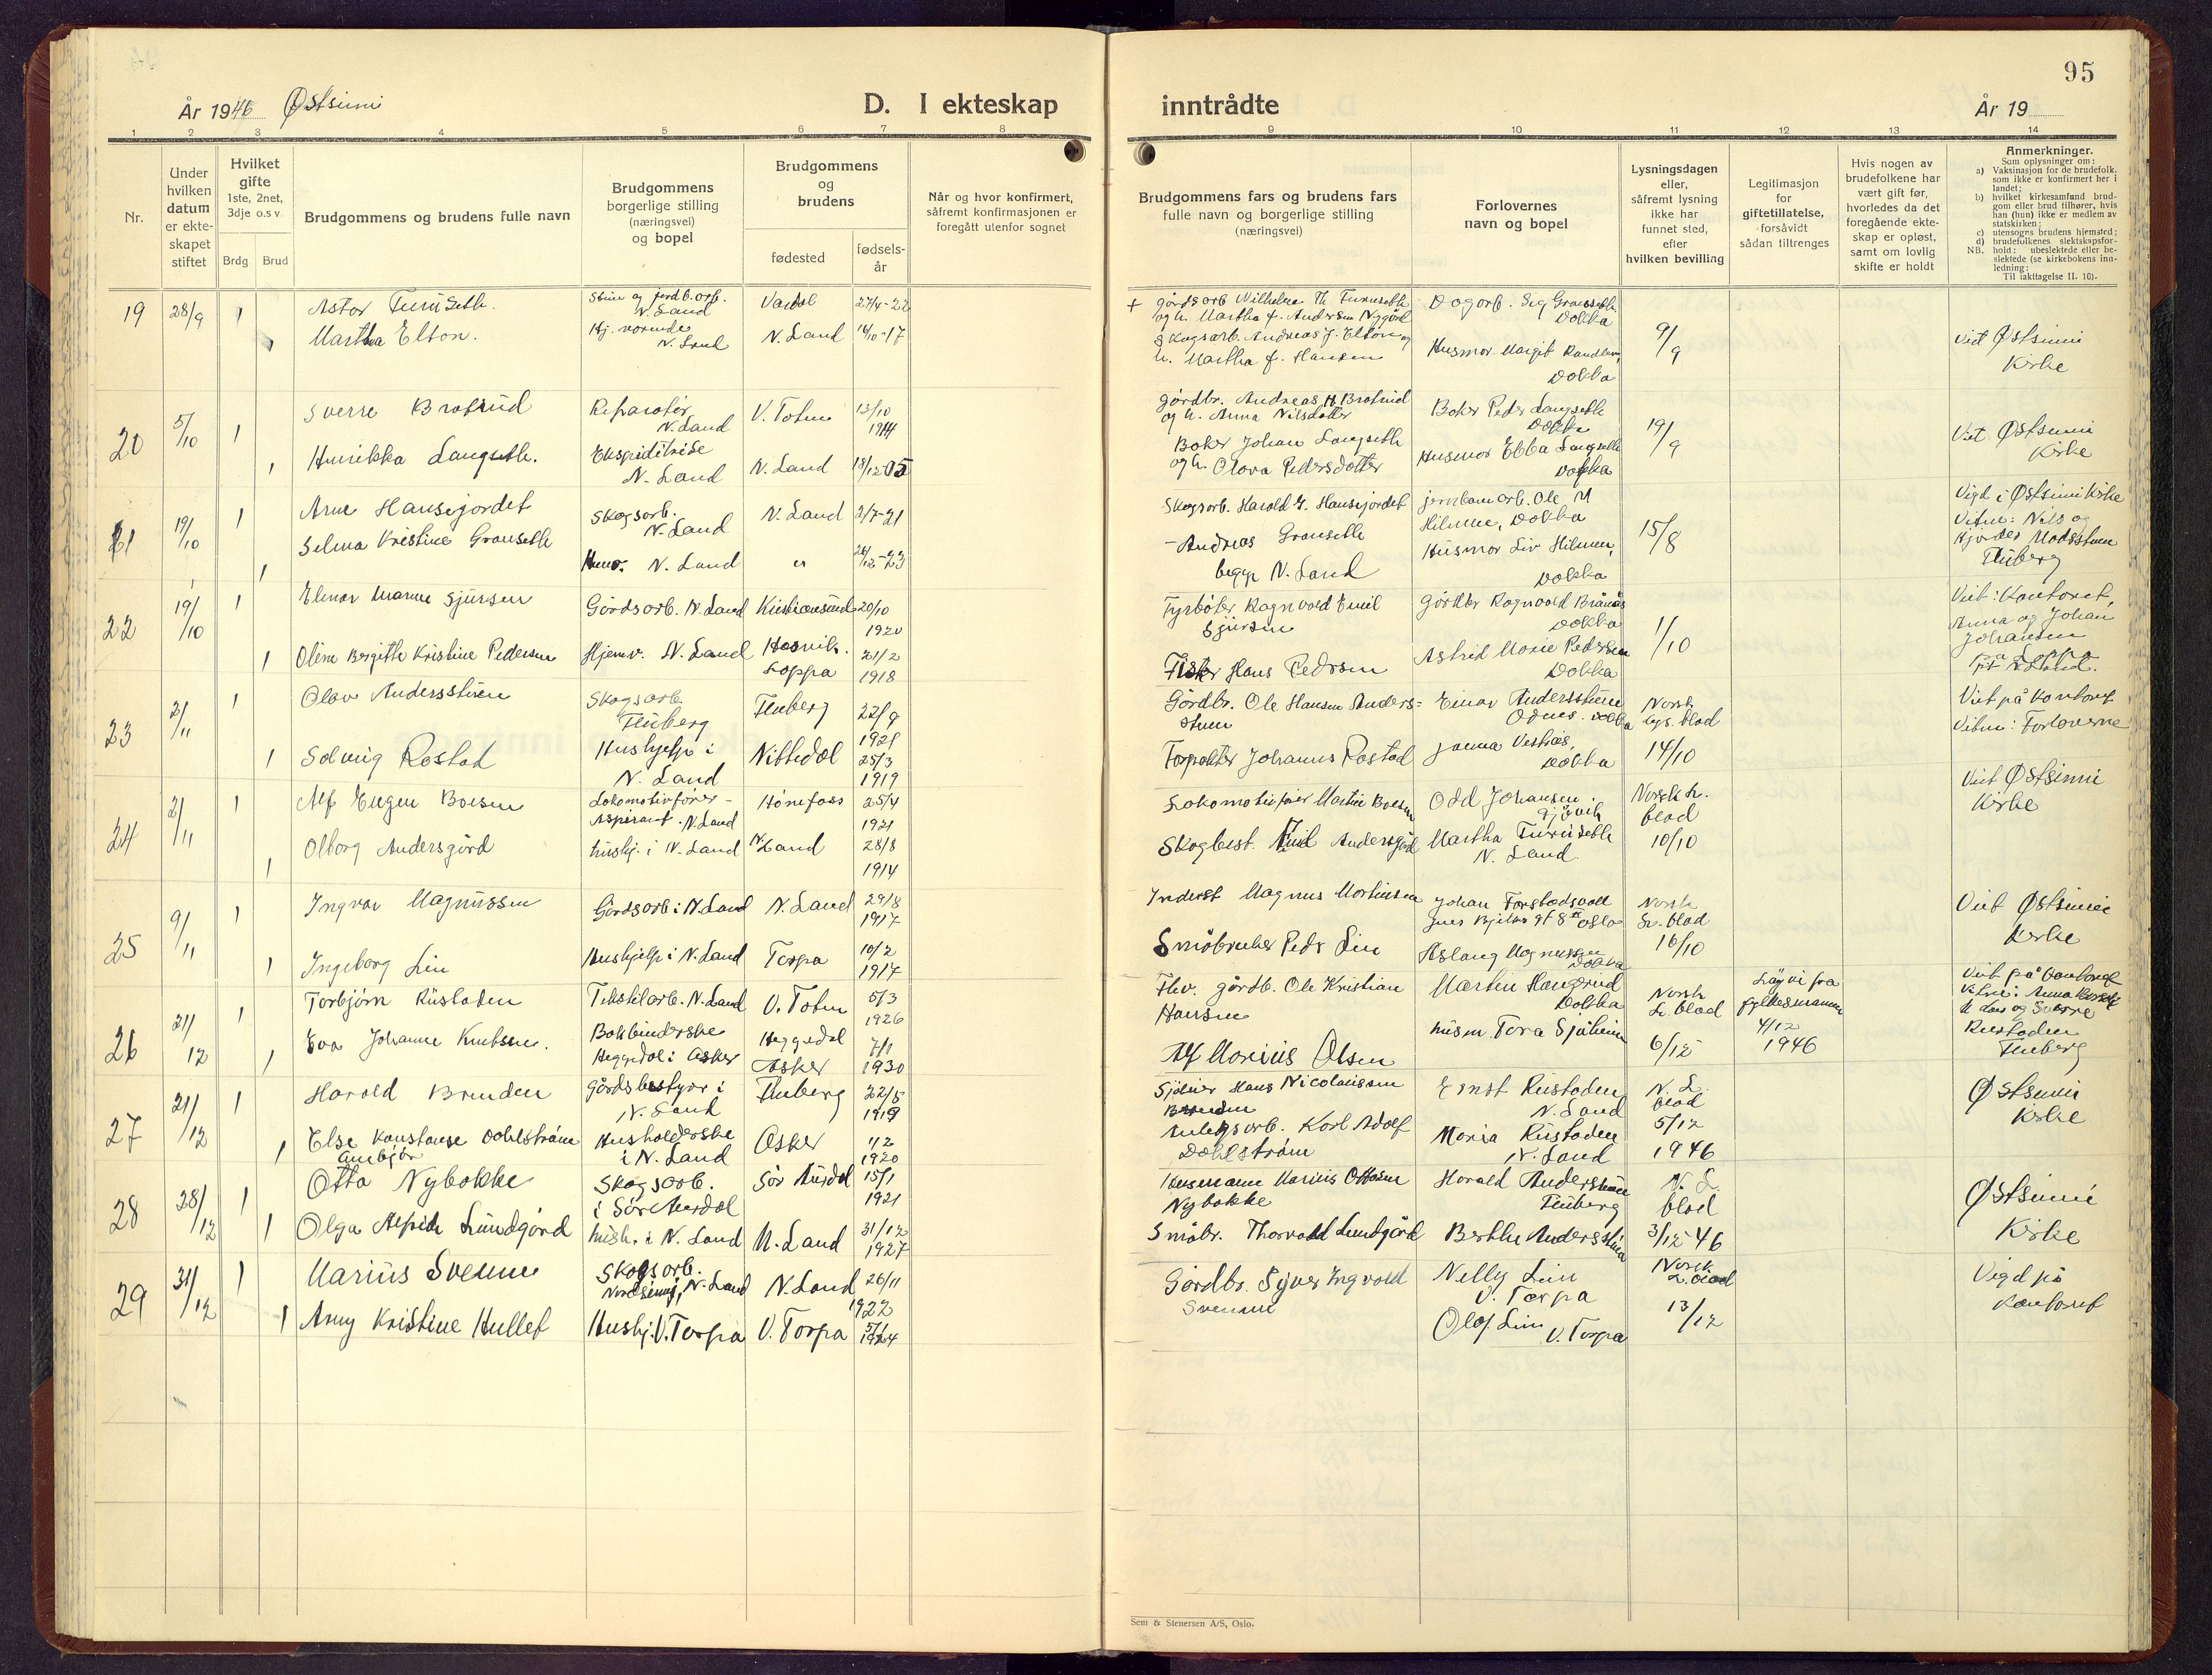 95
År 1946 Østsinni
D. I ekteskap
inntrådte
År 19
1 2 3 4 5 6 7 8
9 10 11 12 13 14
Nr.
Under
hvilken
datum
er ekte-
skapet
stiftet
Hvilket
gifte
1ste, 2net,
3dje o.s.v.
Brdg. Brud
Brudgommens og brudens fulle navn
Brudgommens
borgerlige stilling
(næringsvei)
og bopel
Brudgommens
og
brudens
fødested
fødsels-
år
Når og hvor konfirmert,
såfremt konfirmasjonen er
foregått utenfor sognet
Brudgommens fars og brudens fars
fulle navn og borgerlige stilling
(næringsvei)
Forlovernes
navn og bopel
Lysningsdagen
eller,
såfremt lysning
ikke har
funnet sted,
efter
hvilken bevilling
Legitimasjon
for
giftetillatelse,
forsåvidt
sådan tiltrenges
Hvis nogen av
brudefolkene har
vært gift før,
hvorledes da det
foregående ekte-
skap er opløst,
samt om lovlig
skifte er holdt
Anmerkninger.
Som oplysninger om:
a) Vaksinasjon for de brudefolk,
som ikke er konfirmert her i
landet;
b) hvilket kirkesamfund brud-
gom eller brud tilhører, hvis
han (hun) ikke er medlem av
statskirken;
c) utensogns brudens hjemsted;
d) brudefolkenes slektskapsfor-
NB. hold: ubeslektede eller be-
slektede (se kirkebokens inn-
ledning:
Til iakttagelse II. 10).
19 28/9 1 Astor Furuseth. Vardal 27/4-22
N. Land
1 Martha Elton. N. Land N. Land 14/10-17
+ gårdsarb Wilhelm Th. Furuseth Dagarb. Sig Granseth
og h. Martha f. Andersen Nygård Dokka
Skogsarb. Andreas J. Elton og
h. Martha f. Hansen Husmor Margit
Dokka
9/9
Viet Østsinni
Kirke
20 5/10 1 Sverre Bratrud Reparatør V. Toten 13/10
N. Land 1914
1 Henrikka Langseth. Ekspeditrise
N. Land N. Land 18/12 05
gårdbr. Andreas H. Bratrud Baker Peder Langseth
og h. Anna Nilsdatter Dokka
Baker Johan Langseth Husmor Ebba Langseth
og h. Olava Pedersdatter Dokka
19/9
Viet Østsinni
Kirke
21 19/10 1 Arne Hansejordet Skogsarb. N. Land 2/7-21
N. Land
1 Selma Kristine Granseth N. Land 26/12-23
Skogsarb. Harald G. Hansejordet jernbanearb. Ole M
Hilmen, Dokka
- Andreas Granseth Husmor Liv Hilmen,
begge N. Land Dokka
15/8
Vigd i Østsinni Kirke
Vitne: Nils og
Fluberg
22 19/10 1 Einar Marne Sjursen Gårdsarb. N. Land Kristiansund 20/10
1920
1 Oline Bergitte Kristine Pedersen Hjemv. N. Land Hasvik. 21/2
Loppa 1918
Fyrbøter Ragnvald Emil Gårdbr Ragnvald Brånås
Sjursen Dokka
Fisker Hans Pedersen Astrid Marie Pedersen
Dokka
1/10
Viet: Kontoret,
Anna og Johan
Johansen
23 2/11 1 Olav Andersstuen Skogsarb Fluberg 22/9
Fluberg 1921
1 Solveig Rostad Hushjelp i Nittedal 25/3
N. Land 1919
Gårdbr. Ole Hansen Anders= Einar Andersstuen
stuen Odnes. Dokka
Torpakter Johannes Rostad
Dokka
Norsk
lys. blad
14/10
Viet på kontoret
Vitne: Forloverne
24 2/11 1 Alf Eugen Boesen Lokomotivfører- Hønefoss 25/4
Aspirant. N. Land 1921
1 Olborg Andersgård hushj. i N. Land N. Land 28/8
1914
Lokomotivfører Martin Boesen Odd Johansen
Gjøvik
Skogbest. Emil Andersgård Martha Furuseth
N. Land
Norsk L.
blad
10/10
Viet Østsinni
Kirke
25 9/11 1 Ingvar Magnussen Gårdsarb i N. Land N. Land 29/8
1917
1 Ingeborg Lien Hushjelp i N. Land Torpa 10/2
1917
Inderst Magnus Martinsen Johan Forstadsvoll
Oslo
Småbruker Peder Lien Aslaug Magnussen
Dokka
Norsk
L. blad
16/10
Viet Østsinni
Kirke
26 21/12 1 Torbjørn Rustaden Tekstilarb. N. Land V. Toten 5/3
1926
1 Eva Johanne Knutsen. Bokbinderske Heggedal 7/1
Heggedal i Asker Asker 1930
Fhv. gårdb. Ole Kristian Martin Haugerud
Hansen Dokka
Alf Marius Olsen husm Tora Sjåheim
Norsk
L. blad
6/12
Løyvi fra
fylkesmannen
4/12
1946
Viet på kontoret
Rustaden
Fluberg
27 21/12 1 Harald Brenden gårdsbestyr i Fluberg 22/5
N. Land 1919
1 Else Konstanse Dahlstrøm Husholderske Asker
Aurbjør i N. Land 1920
Hans Nicolaissen Ernst Rustaden
Brenden N. Land
Anlegsarb. Karl Adolf Maria Rustaden
Dahlstrøm N. Land
N. L.
blad
5/12
1946
Østsinni
Kirke
28 28/12 1 Otto Nybakke Skogsarb. Sør Aurdal 15/1
i Sør Aurdal 1921
1 Olga Alfride Lundgård hush. i N. Land N. Land 31/12
1927
Husmann Marius Ottosen Harald Andersstuen
Nybakke Fluberg
Småbr. Thorvald Lundgård Berthe Andersstuen
N. L.
blad
3/12 46
Østsinni
Kirke
29 31/12 1 Marius Svenne Skogsarb. N. Land 26/11
Nordsinni, N. Land 1922
1 Amy Kristine Hullet Hushj. V. Torpa V. Torpa 5/1
1924
Gårdbr. Syver Ingvald Nelly Lien
Svenne V. Torpa
Olaf Lien V. Torpa
Norsk
L. blad
13/12
Vigd på
kontoret
Sem & Stenersen A/S, Oslo.